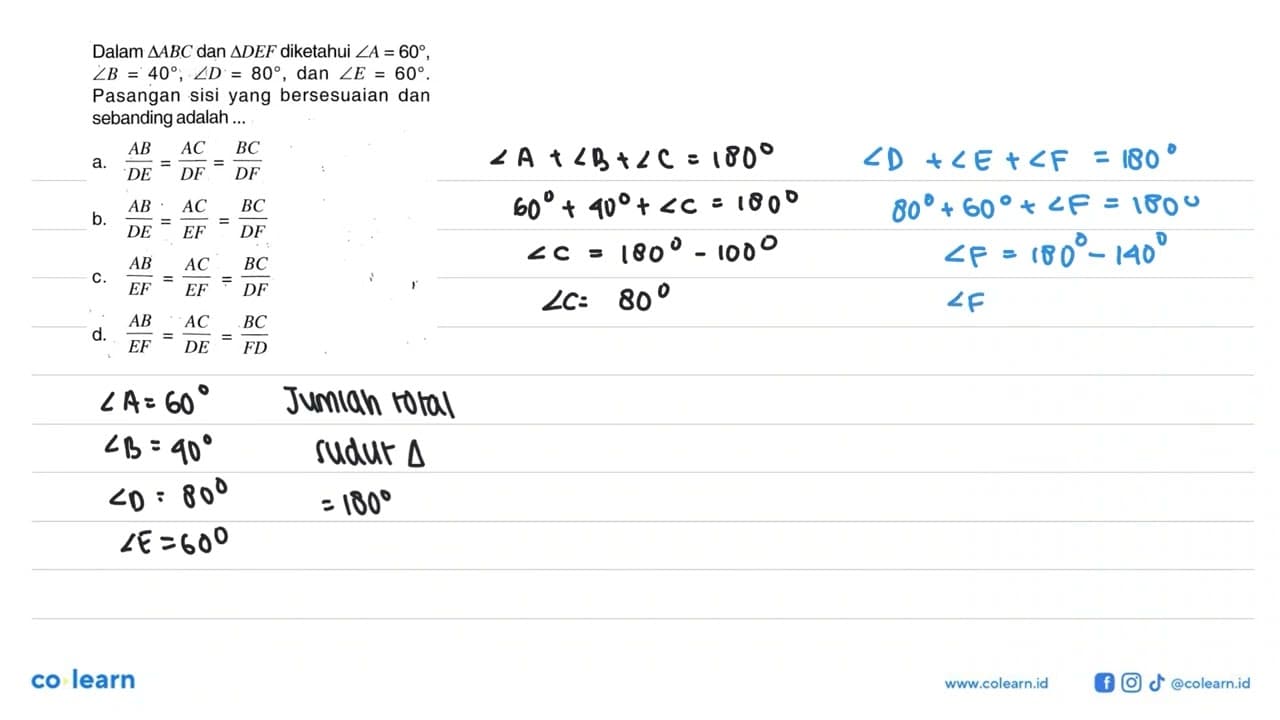 Dalam ΔABC dan ΔDEF diketahui ∠A = 60°,
∠B = 40°, ∠D = 80°, dan ∠E = 60°.
Pasangan sisi yang bersesuaian dan
sebanding adalah ...
a. AB/DE = AC/DF = BC/DF
b. AB/DE = AC/EF = BC/DF
c. AB/EF = AC/EF = BC/DF
d. AB/EF = AC/DE = BC/FD
∠A + ∠B + ∠C = 180°
60° + 40° + ∠C = 180°
∠C = 180° - 100°
∠C = 80°
∠D + ∠E + ∠F = 180°
80° + 60° + ∠F = 180°
∠F = 180° - 140°
∠F
∠A = 60°
∠B = 40°
∠D = 80°
∠E = 60°
Jumlah total
sudut Δ
= 180°
co learn
www.colearn.id
@colearn.id